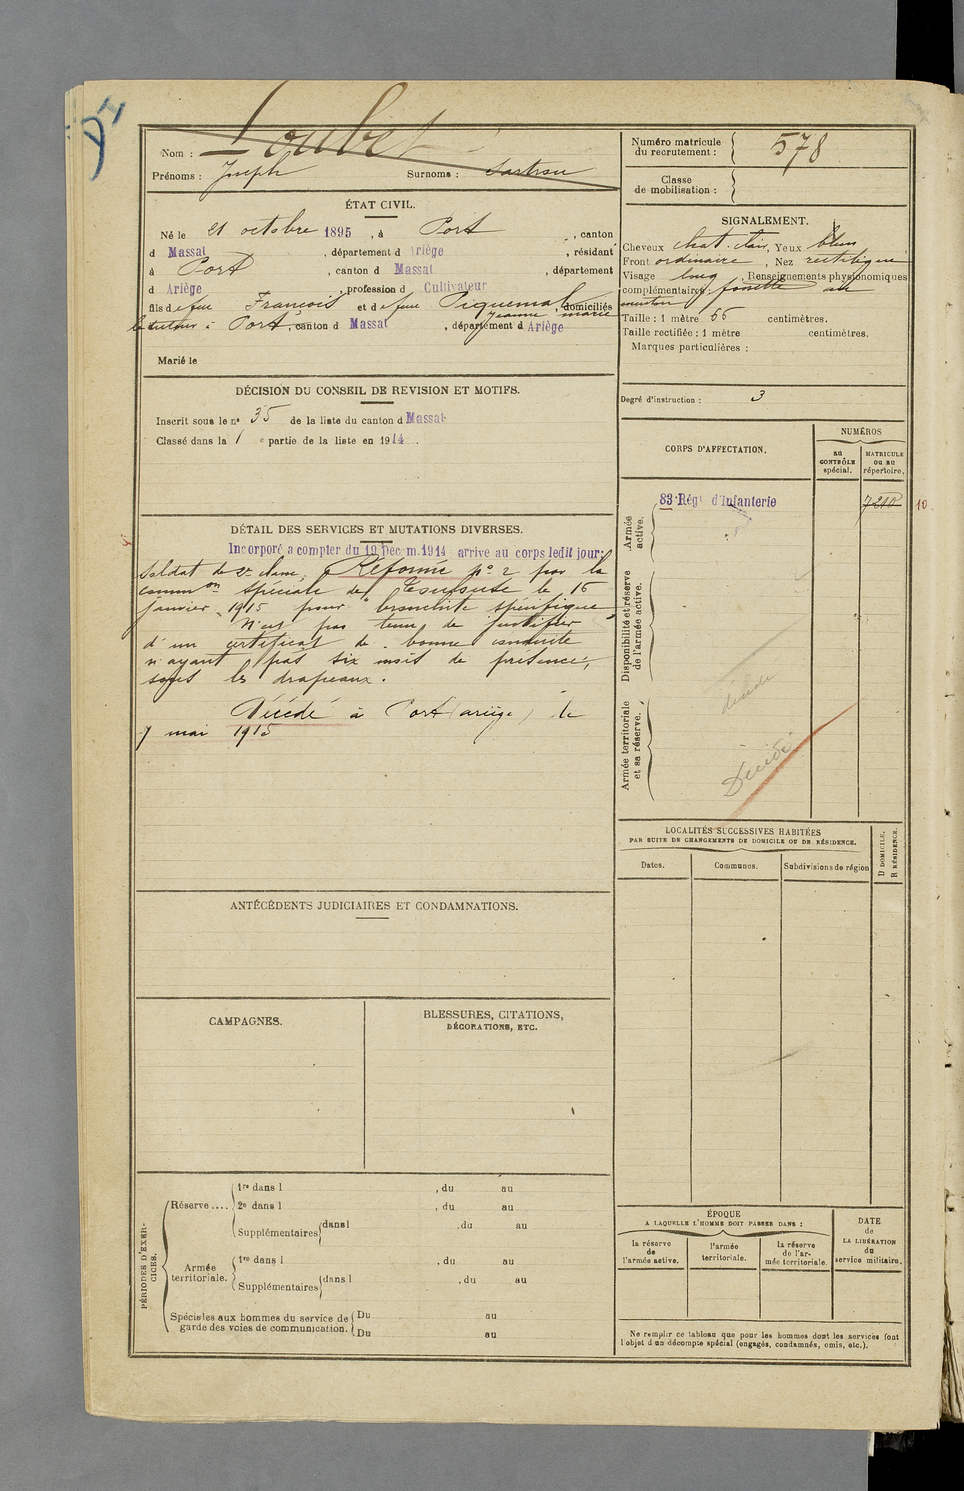 Nom : Loubet
Prénoms : Joseph Surnoms : Sartrou
Numéro matricule du recrutement : 578
Classe de mobilisation :
ÉTAT CIVIL.
Né le 21 octobre 1895, à Port, canton
d Massat, département d Ariège, résidant
à Port, canton d Massat, département
d Ariège, profession d Cultivateur
fils de feu François et de feue Piquemal Jeanne Marie, domiciliés
à Port, canton d Massat, département d Ariège
Marié le
SIGNALEMENT.
Cheveux chat. clair, Yeux bleus
Front ordinaire, Nez rectiligne
Visage long, Renseignements physionomiques
complémentaires : fossette au
menton
Taille : 1 mètre 56 centimètres.
Taille rectifiée : 1 mètre centimètres.
Marques particulières :
Degré d'instruction : 3
DÉCISION DU CONSEIL DE REVISION ET MOTIFS.
Inscrit sous le nº 35 de la liste du canton d Massat
Classé dans la 1 e partie de la liste en 1914.
CORPS D'AFFECTATION.
NUMÉROS
au CONTRÔLE spécial.
MATRICULE ou au répertoire.
Armée active.
83 Régt d'Infanterie 7210 10
Disponibilité et réserve de l'armée active.
décédé
Armée territoriale et sa réserve.
Décédé
DÉTAIL DES SERVICES ET MUTATIONS DIVERSES.
Incorporé a compter du 19 Decem.1914 arrive au corps ledit jour;
Soldat de 2e classe, Réformé nº 2 par la
common spéciale de Toulouse le 15
janvier 1915 pour "bronchite spécifique"
N'est pas tenu de justifier
d'un certificat de bonne conduite
n'ayant pas six mois de présence,
sous les drapeaux.
Décédé à Port (ariège) le
7 mai 1915
LOCALITÉS SUCCESSIVES HABITÉES
PAR SUITE DE CHANGEMENTS DE DOMICILE OU DE RÉSIDENCE.
Dates. Communes. Subdivisions de région
D DOMICILE, R RÉSIDENCE.
ANTÉCÉDENTS JUDICIAIRES ET CONDAMNATIONS.
CAMPAGNES.
BLESSURES, CITATIONS,
DÉCORATIONS, ETC.
PÉRIODES D'EXERCICES.
Réserve .... 1re dans l , du au
2e dans l , du au
Supplémentaires dans l , du au
Armée territoriale. 1re dans l , du au
Supplémentaires dans l , du au
Spéciales aux hommes du service de garde des voies de communication. Du au
Du au
ÉPOQUE
A LAQUELLE L'HOMME DOIT PASSER DANS :
la réserve de l'armée active.
l'armée territoriale.
la réserve de l'armée territoriale.
DATE de LA LIBÉRATION du service militaire.
Ne remplir ce tableau que pour les hommes dont les services font
l'objet d'un décompte spécial (engagés, condamnés, omis, etc.).